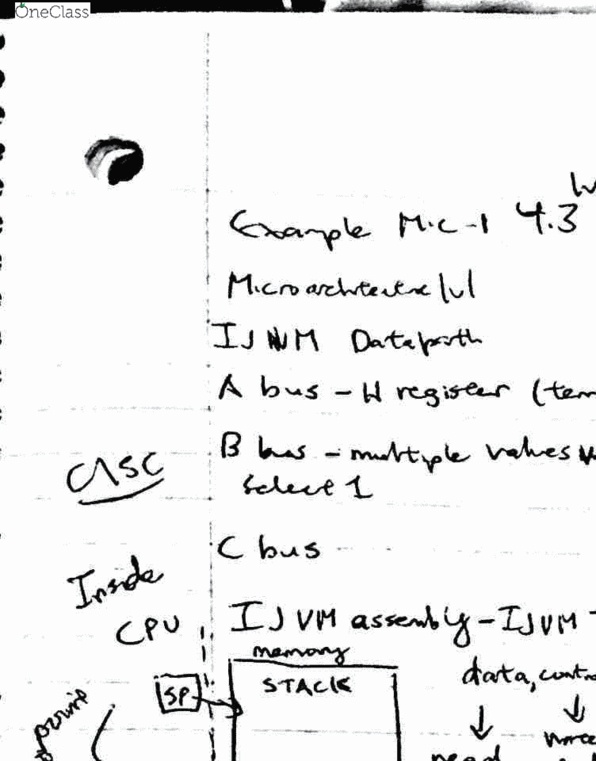 OneClass
Example Mic-1 4.3
Microarchtectre lvl
IJVM Datapath
A bus - H register (tem
B bus - multiple values
Select 1
CISC
C bus
Inside
CPU
IJVM assembly - IJVM
memory
STACK
SP
data, contr